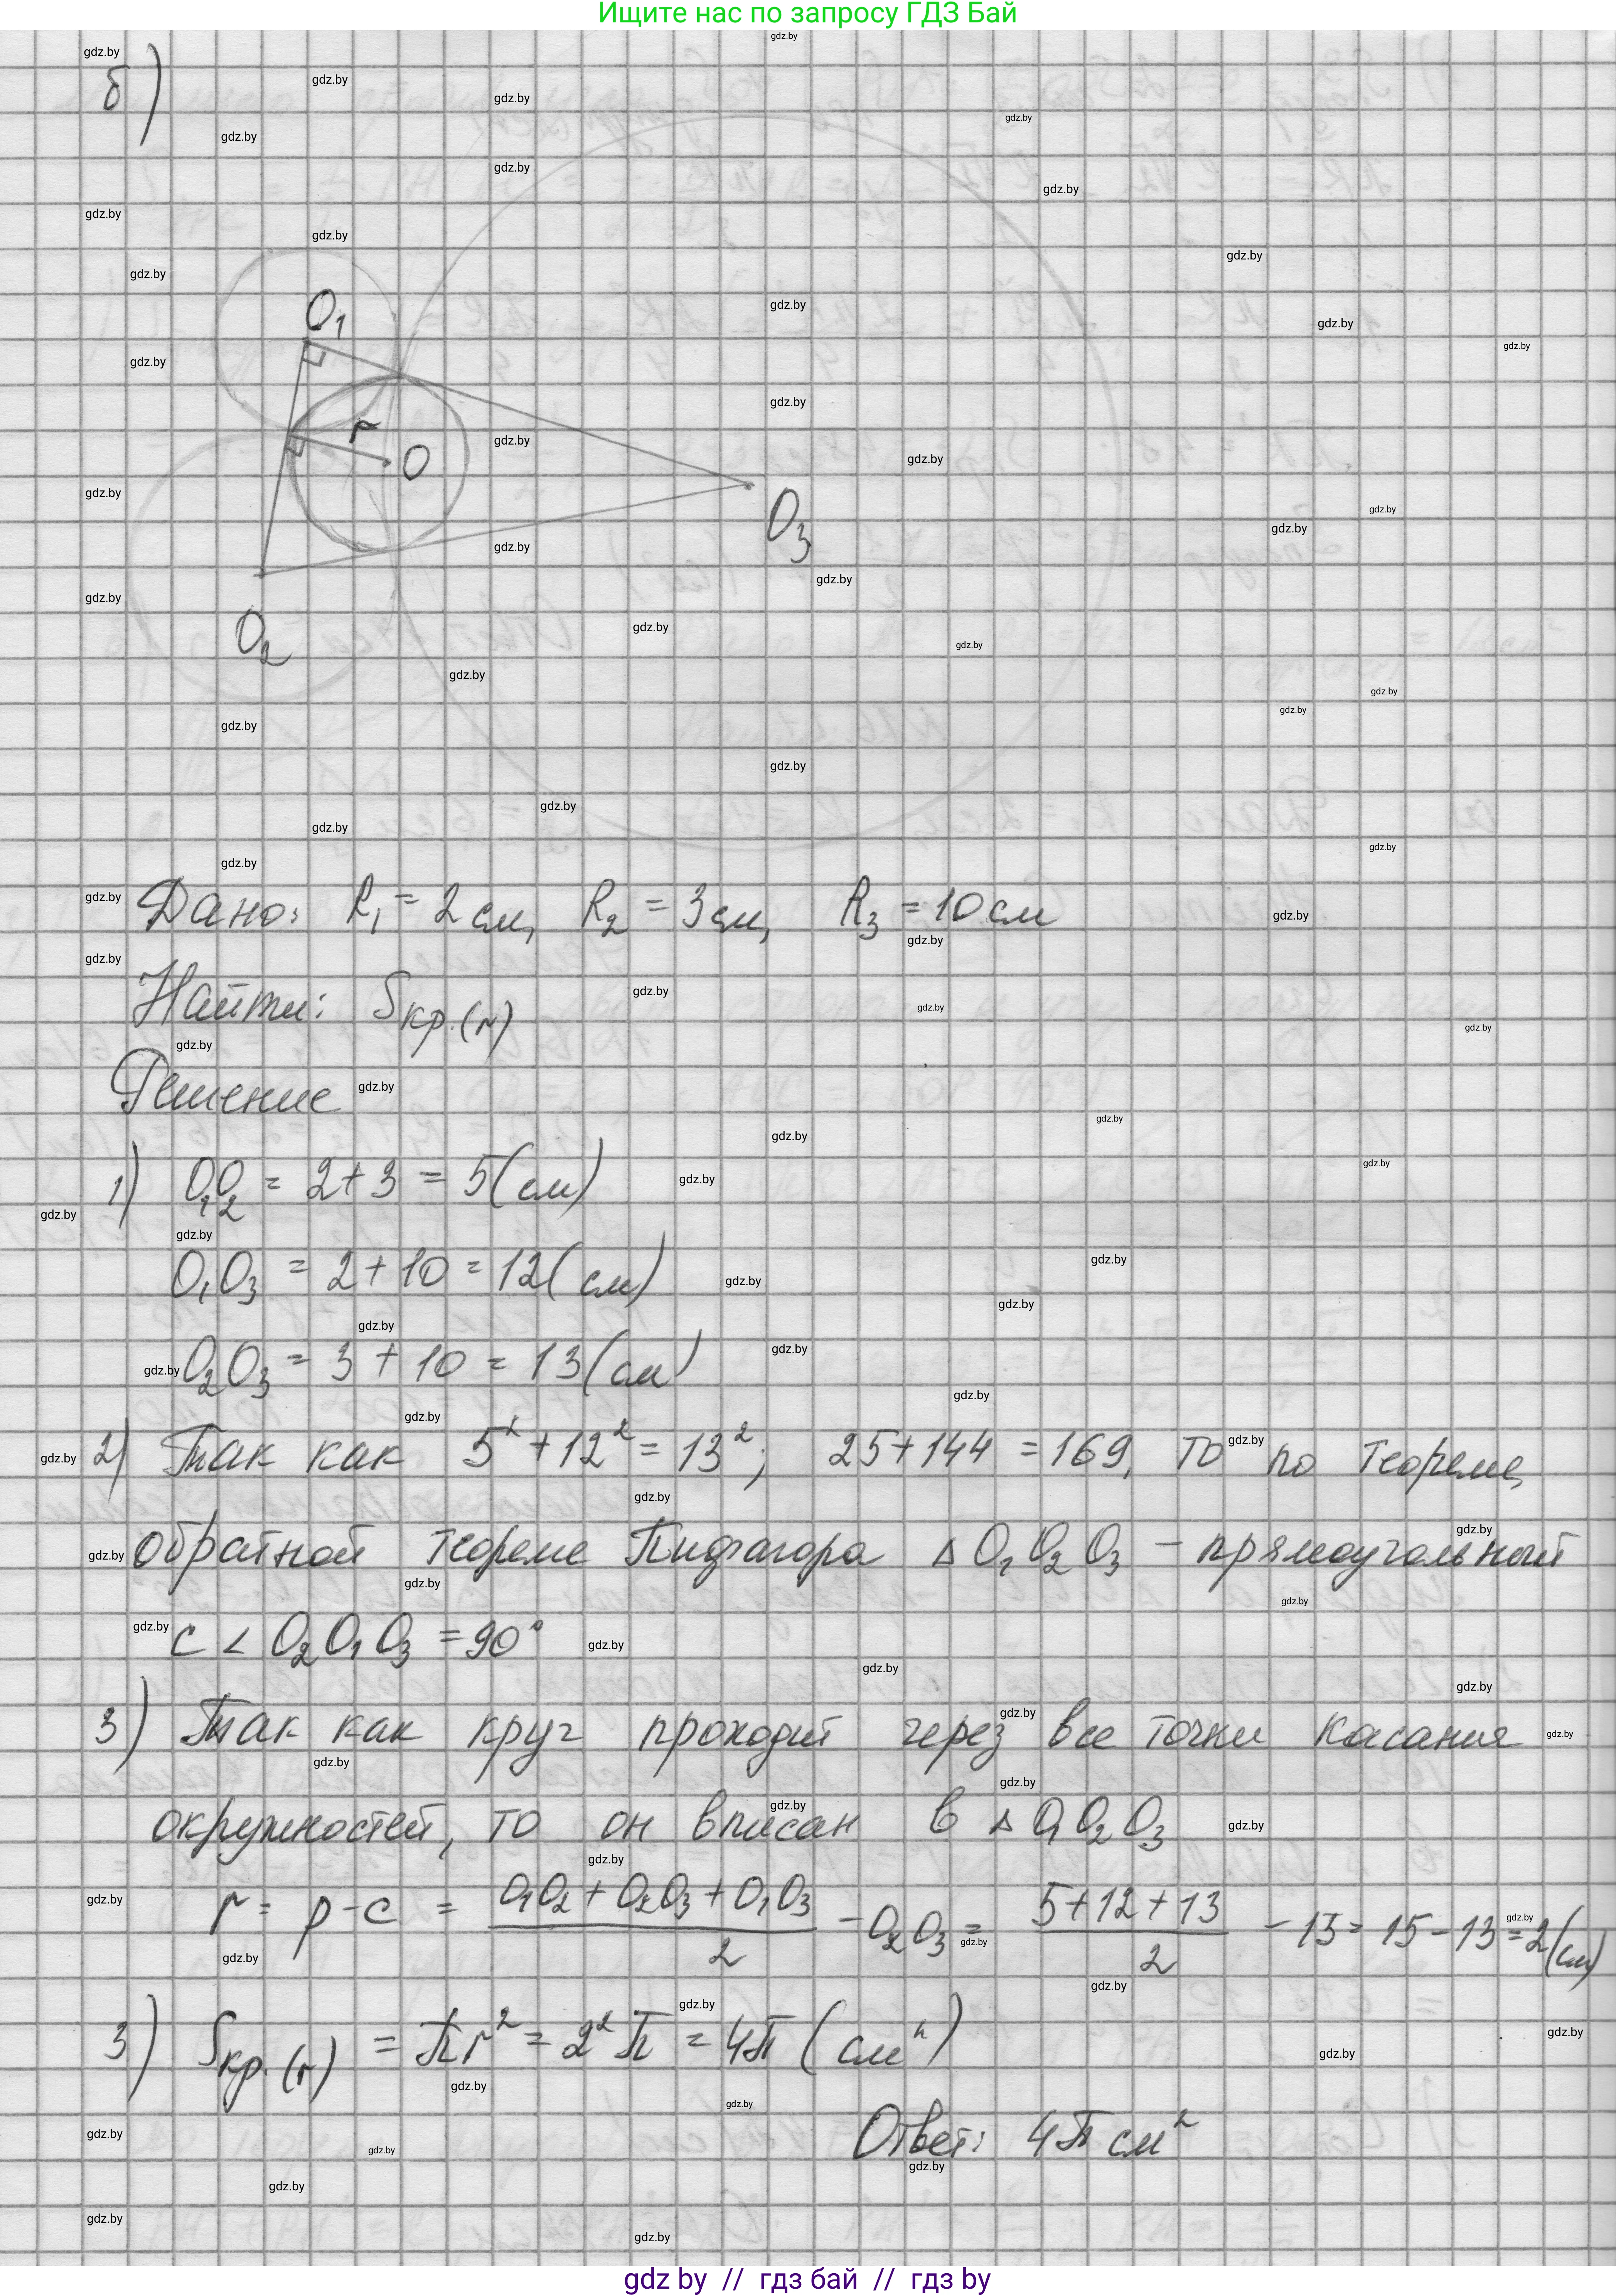 Ищите нас по запросу ГДЗ Бай
б)
O₁
r
O
O₃
O₂
Дано: R₁ = 2 см, R₂ = 3 см, R₃ = 10 см
Найти: Sкр.(r)
Решение
1) O₁O₂ = 2 + 3 = 5 (см)
O₁O₃ = 2 + 10 = 12 (см)
O₂O₃ = 3 + 10 = 13 (см)
2) Так как 5² + 12² = 13²; 25 + 144 = 169, то по теореме,
обратной теореме Пифагора Δ O₁O₂O₃ – прямоугольный
с < O₂O₁O₃ = 90°
3) Так как круг проходит через все точки касания
окружностей, то он вписан в Δ O₁O₂O₃
r = p - c = (O₁O₂ + O₂O₃ + O₁O₃)/2 - O₂O₃ = (5 + 12 + 13)/2 - 13 = 15 - 13 = 2 (см)
3) Sкр.(r) = πr² = 2²π = 4π (см²)
Ответ: 4π см²
gdz by // гдз бай // гдз by